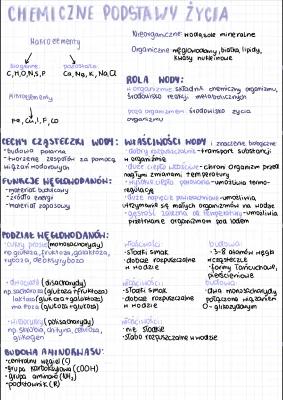 CHEMICZNE PODSTAWY ŻYCIA
Makroelementy
biogenne
C, H, O, N, S, P
pozostałe
Ca, Na, K, Na, Cl
Mikroelementy
Fe, Cu, I, F, Co
Nieorganiczne: woda, sole mineralne
Organiczne: węglowodany, białka, lipidy,
kwasy nukleinowe
ROLA WODY:
w organizmie: składnik chemiczny organizmu,
środowisko reakcji metabolicznych
poza organizmem: środowisko życia
organizmu
CECHY CZĄSTECZKI WODY:
- budowa polarna
- tworzenie zespołów za pomocą
wiązań wodorowych
FUNKCJE WĘGLOWODANÓW:
- materiał budulcowy
- źródło energii
- materiał zapasowy
WŁAŚCIWOŚCI WODY i znaczenie biologiczne
- dobry rozpuszczalnik - transport substancji
w organizmie
- duże ciepło właściwe - chroni organizm przed
nagłymi zmianami temperatury
- wysokie ciepło parowania - umożliwia termo-
regulację
- duże napięcie powierzchniowe - umożliwia
utrzymanie się małych organizmów na wodzie
- gęstość zależna od temperatury - umożliwia
przetrwanie organizmom pod lodem
PODZIAŁ WĘGLOWODANÓW:
- cukry proste (monosacharydy)
np. glukoza, fruktoza, galaktoza,
ryboza, deoksyryboza
właściwości:
- słodki smak
- dobrze rozpuszczalne
w wodzie
budowa:
- 3-8 atomów węgla
w cząsteczce
- formy łańcuchowe,
pierścieniowe
- dwucukry (disacharydy)
np. sacharoza (glukoza + fruktoza)
laktoza (glukoza + galaktoza)
maltoza (glukoza + glukoza)
właściwości:
- słodki smak
- dobrze rozpuszczalne
w wodzie
budowa:
- dwa monosacharydy
połączone wiązaniem
O-glikozydowym
- wielocukry (polisacharydy)
np. skrobia, chityna, celuloza,
glikogen
właściwości:
- nie słodkie
- słabo rozpuszczalne w wodzie
BUDOWA AMINOKWASU:
- centralny węgiel (C)
- grupa karboksylowa (COOH)
- grupa aminowa (NH₂)
- podstawnik (R)